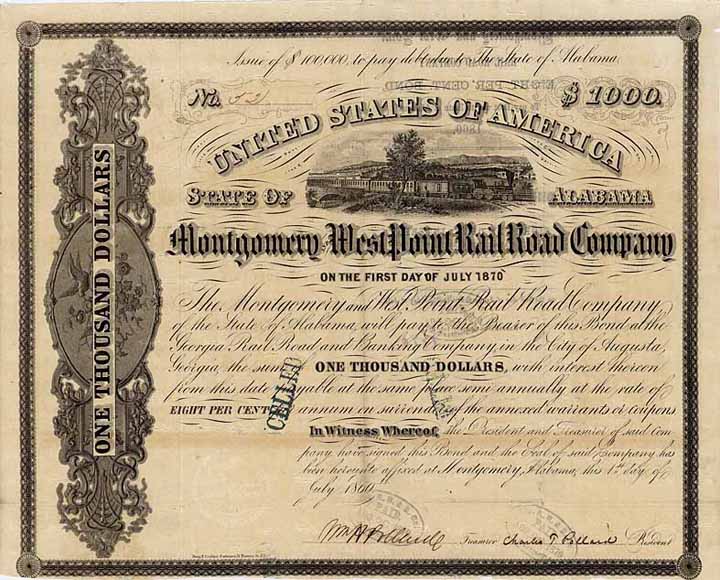 Issue of $100,000, to pay debt due to The State of Alabama.
EIGHT PER CENT. BOND
No. 52
$1000.
1860.
UNITED STATES OF AMERICA
STATE OF ALABAMA
Montgomery and West Point Rail Road Company
ON THE FIRST DAY OF JULY 1870
The Montgomery and West Point Rail Road Company
of the State of Alabama, will pay to the Bearer of this Bond at the
Georgia Rail Road and Banking Company, in the City of Augusta,
Georgia, the sum ONE THOUSAND DOLLARS, with interest thereon
from this date payable at the same place semi annually at the rate of
EIGHT PER CENT annum on surrender of the annexed warrants or coupons.
In Witness Whereof, the President and Treasurer of said Com-
pany have signed this Bond and the Seal of said Company has
been hereunto affixed at Montgomery, Alabama, this 1st day of
July 1860
Wm H Pollard Treasurer Charles T Pollard President
ONE THOUSAND DOLLARS
CELLED
PAID